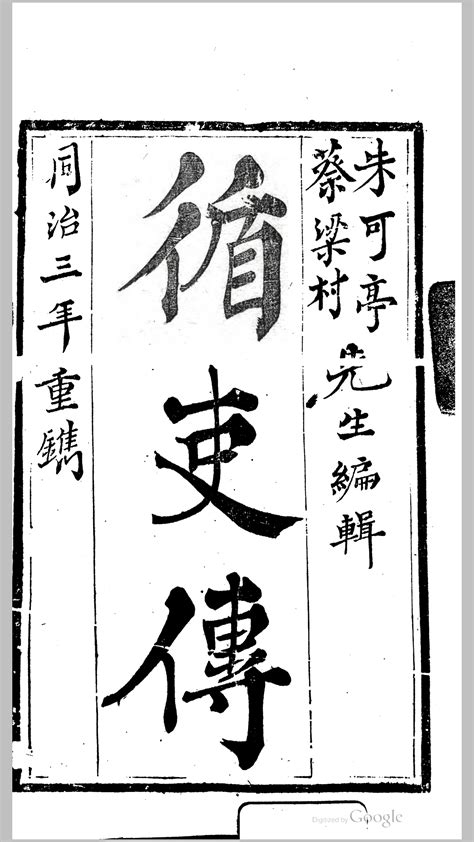 朱可亭
蔡梁村
先生編輯
循吏傳
同治三年重鐫
Digitized by Google